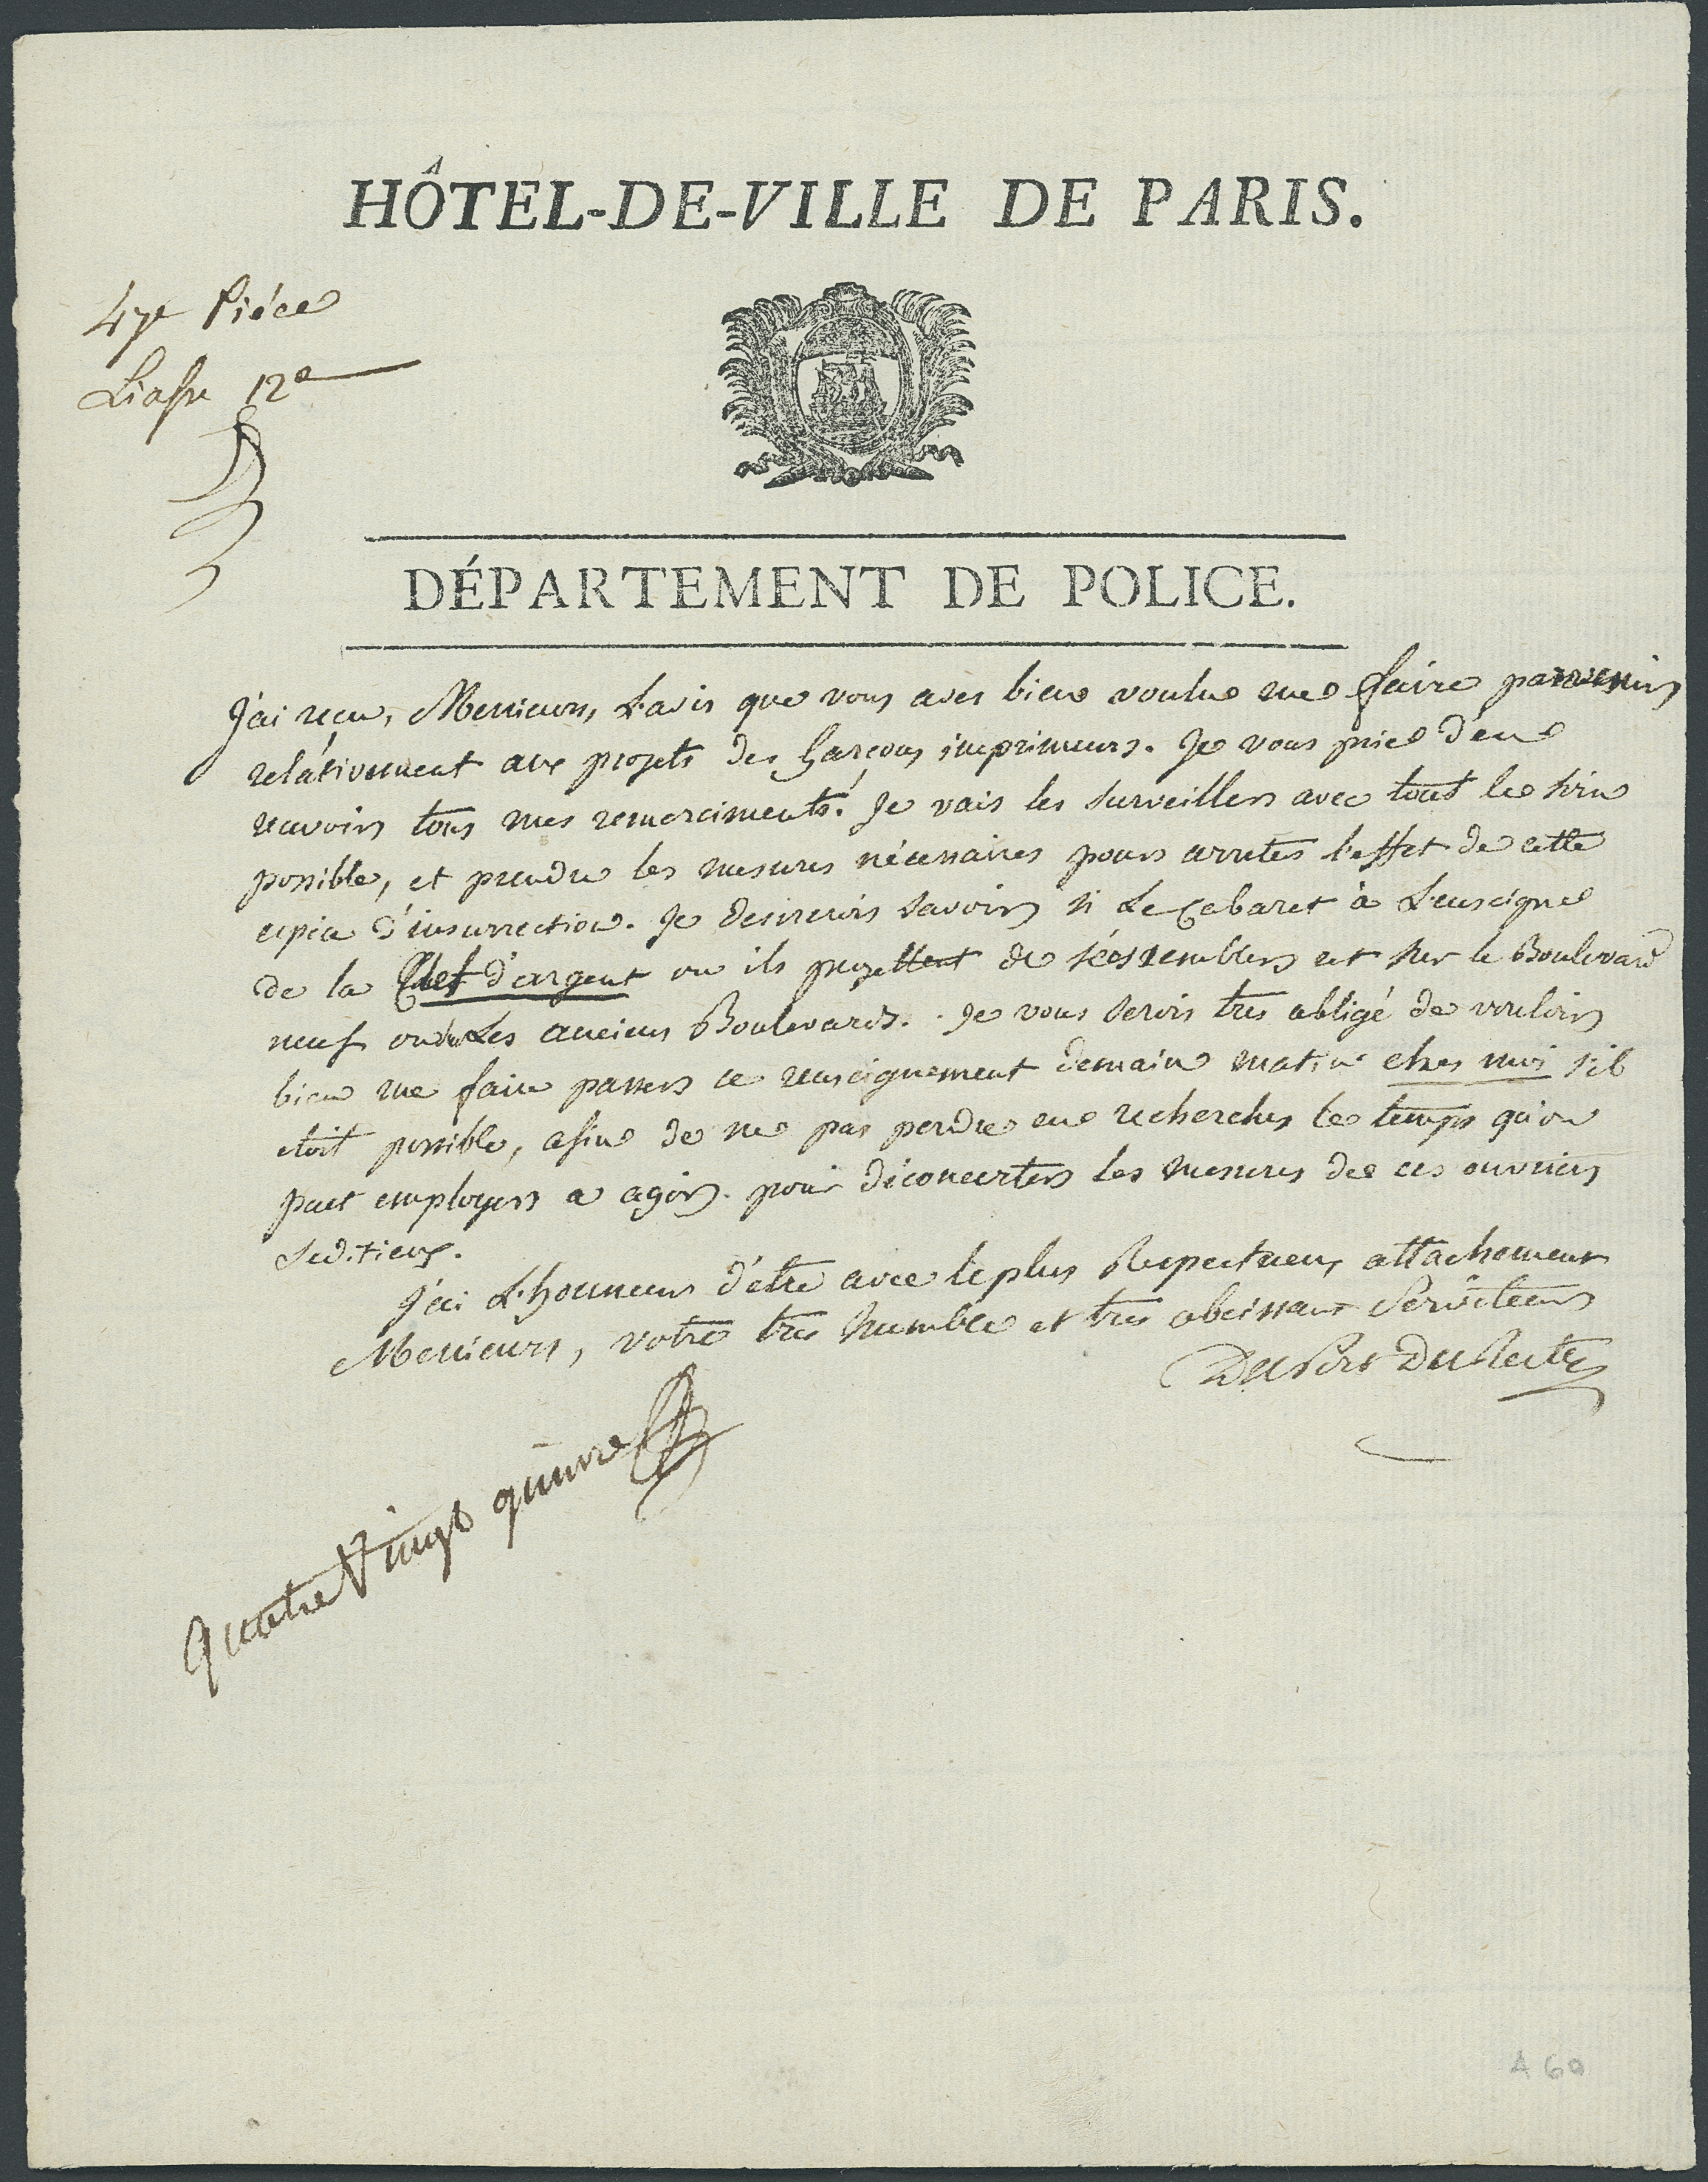 HÔTEL-DE-VILLE DE PARIS.
47e Piéce
Liasse 12e
DÉPARTEMENT DE POLICE.
J'ai reçu, Messieurs, L'avis que vous avés bien voulu me faire parvenir
relativement aux projets des Garçons imprimeurs. Je vous prie d'en
recevoir tous mes remerciments. Je vais les surveiller avec tout le soin
possible, et prendre les mesures nécessaires pour arrêter l'effet de cette
espece d'insurrection. Je desirerois savoir si Le Cabaret à L'enseigne
de la Clef d'argent ou ils projettent de s'assembler est sur le Boulevard
neuf ou sur Les anciens Boulevards. Je vous serois très obligé de vouloir
bien me faire passer ce renseignement demain matin chés moi s'il
étoit possible, afin de ne pas perdre en recherches le temps qu'on
peut employer a agir pour déconcerter les mesures de ces ouvriers
seditieux.
J'ai L'honneur d'être avec le plus Respectueux attachement
Messieurs, votre très humble et très obeissant Serviteur
Duport Dutertre
quatre Vingt quinze
A 60